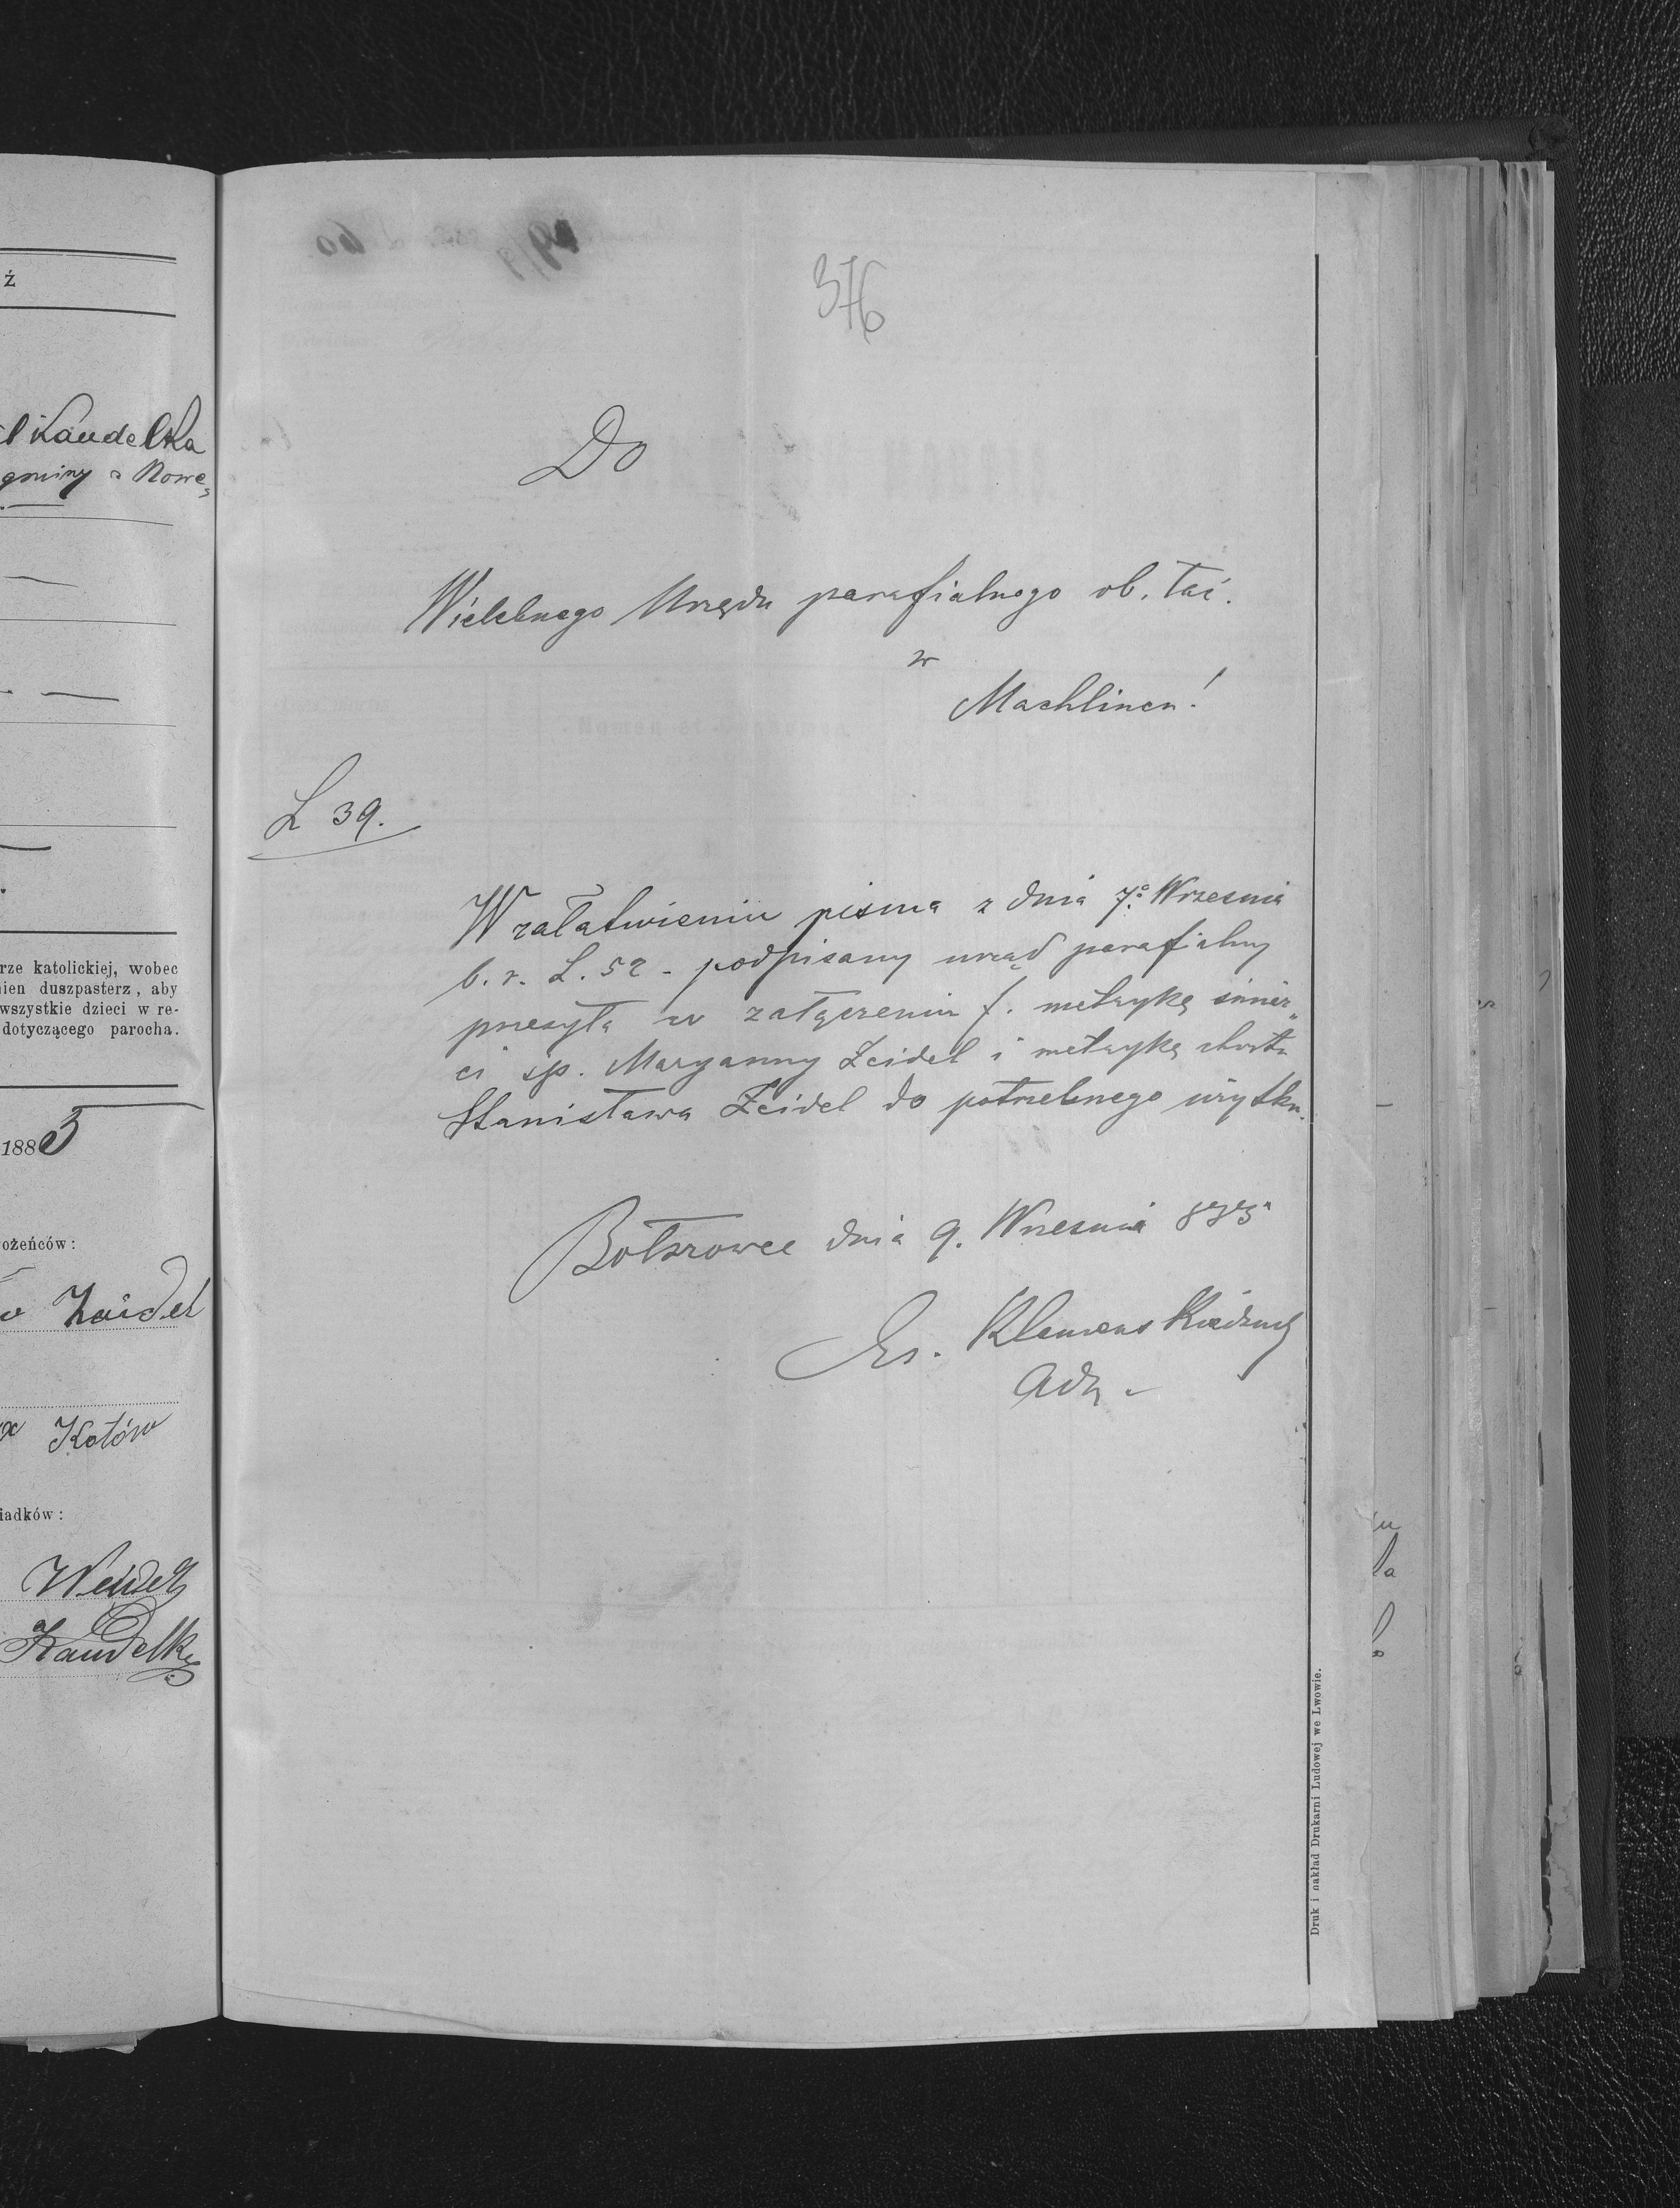 ź
Kaudelka
gminy z Nowe
rze katolickiej, wobec
ien duszpasterz, aby
wszystkie dzieci w re-
dotyczącego parocha.
1885
ożeńców:
Zaidel
Kotów
iadków:
Weidel
Kaudelka
376
Do
Wielebnego Urzędu parafialnego ob. łać.
w
Machlincu!
L 39.
W załatwieniu pisma z dnia 7º Wrzesnia
b. r. L. 52 - podpisany urząd parafialny
przesyła w załączeniu /. metrykę śmier„
ci śp. Maryanny Zeidel i metrykę chrztu
Stanisława Zeidel do potrzebnego użytku.
Bołszowce dnia 9. Wrzesnia 885
Ks. Klemens
Adm
Druk i nakład Drukarni Ludowej we Lwowie.